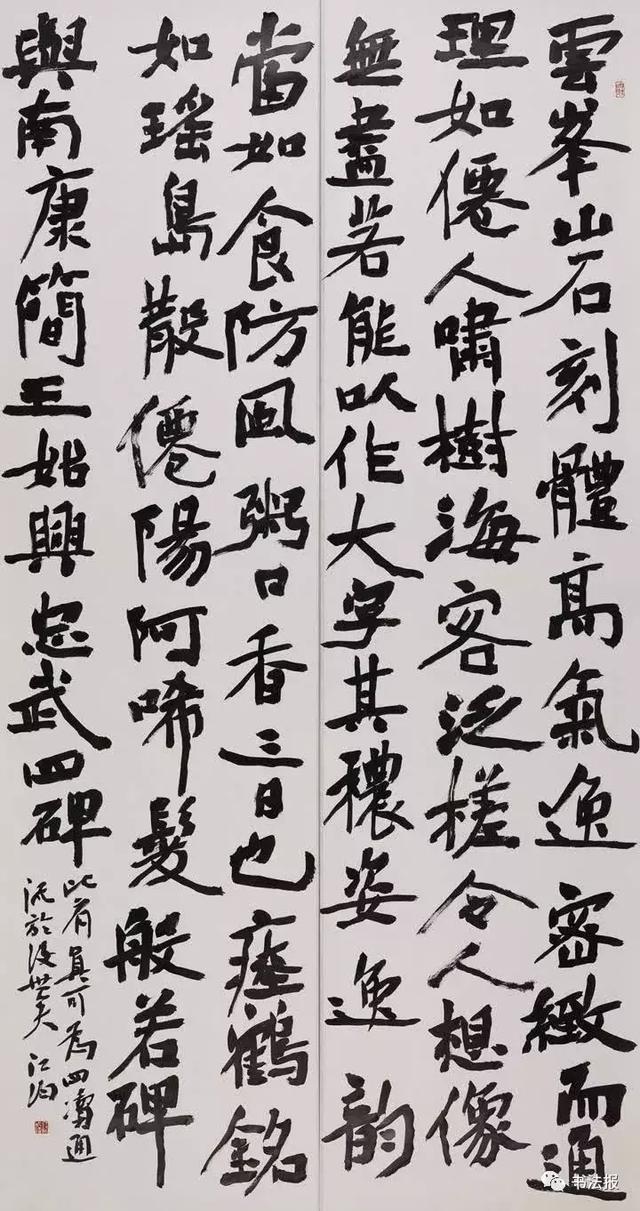 雲峯山石刻體高氣逸密緻而通
理如僊人嘯樹海客泛槎令人想像
無盡若能以作大字其穠姿逸韵
當如食防風粥口香三日也瘞鶴銘
如瑶島散僊陽阿晞髮般若碑
與南康簡王始興忠武四碑
此前真可為四瀆通
流於後世矣 江泊
书法报